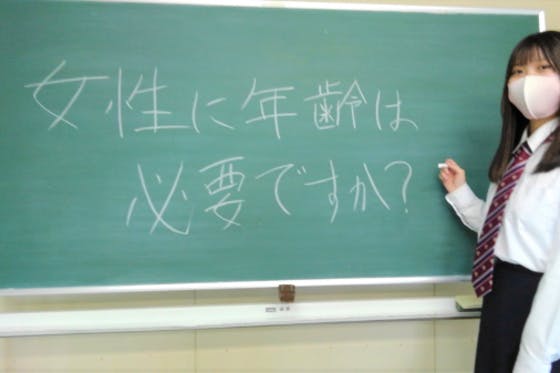 女性に年齢は
必要ですか?